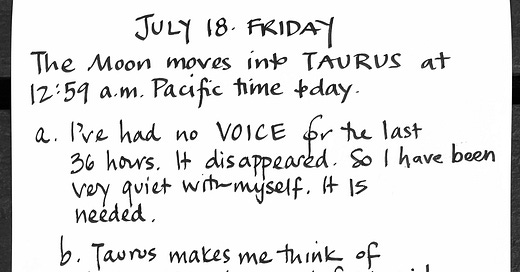 JULY 18. FRIDAY
The Moon moves into TAURUS at
12:59 a.m. Pacific time today.
a. I've had no VOICE for the last
36 hours. It disappeared. So I have been
very quiet with myself. It IS
needed.
b. Taurus makes me think of